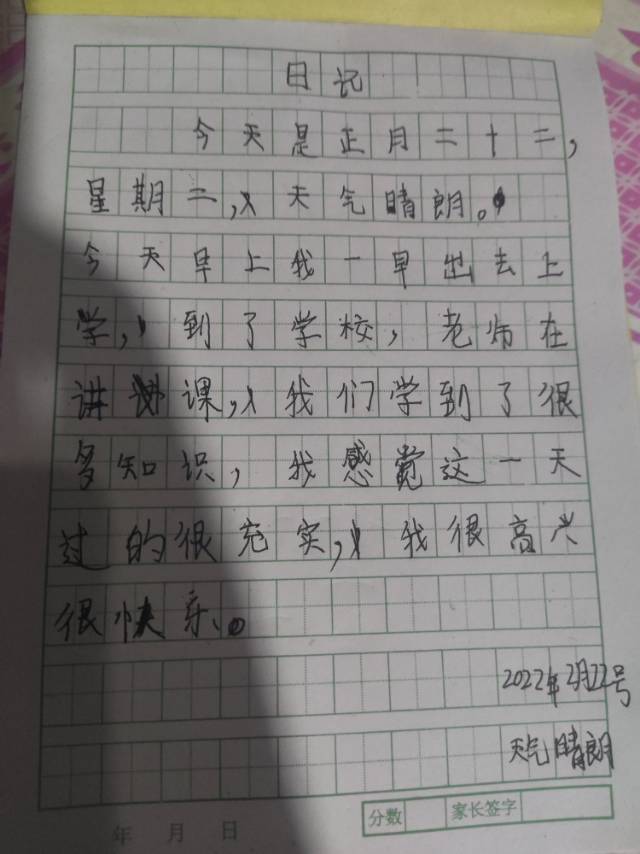 日记
今天是正月二十二,
星期二,天气晴朗。
今天早上我一早出去上
学,到了学校,老师在
讲课,我们学到了很
多知识,我感觉这一天
过的很充实,我很高兴
很快乐。
2022年2月22号
天气晴朗
分数 家长签字
年 月 日